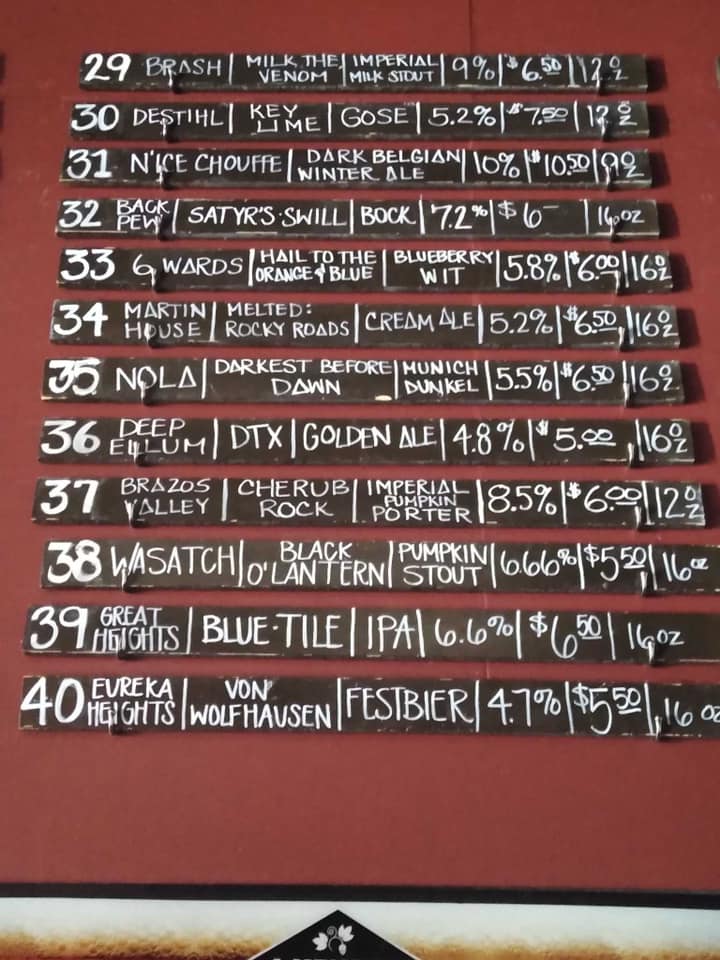 29 BRASH | MILK THE VENOM | IMPERIAL MILK STOUT | 9% | $6.50 | 12 oz
30 DESTIHL | KEY LIME | GOSE | 5.2% | $7.50 | 12 oz
31 N'ICE CHOUFFE | DARK BELGIAN WINTER ALE | 10% | $10.50 | 9 oz
32 BACK PEW | SATYR'S SWILL | BOCK | 7.2% | $6- | 16 oz
33 6 WARDS | HAIL TO THE ORANGE & BLUE | BLUEBERRY WIT | 5.8% | $6.00 | 16 oz
34 MARTIN HOUSE | MELTED: ROCKY ROADS | CREAM ALE | 5.2% | $6.50 | 16 oz
35 NOLA | DARKEST BEFORE DAWN | MUNICH DUNKEL | 5.5% | $6.50 | 16 oz
36 DEEP ELLUM | DTX | GOLDEN ALE | 4.8% | $5.00 | 16 oz
37 BRAZOS VALLEY | CHERUB ROCK | IMPERIAL PUMPKIN PORTER | 8.5% | $6.00 | 12 oz
38 WASATCH | BLACK O'LANTERN | PUMPKIN STOUT | 6.66% | $5.50 | 16 oz
39 GREAT HEIGHTS | BLUE·TILE | IPA | 6.6% | $6.50 | 16 oz
40 EUREKA HEIGHTS | VON WOLFHAUSEN | FESTBIER | 4.7% | $5.50 | 16 oz